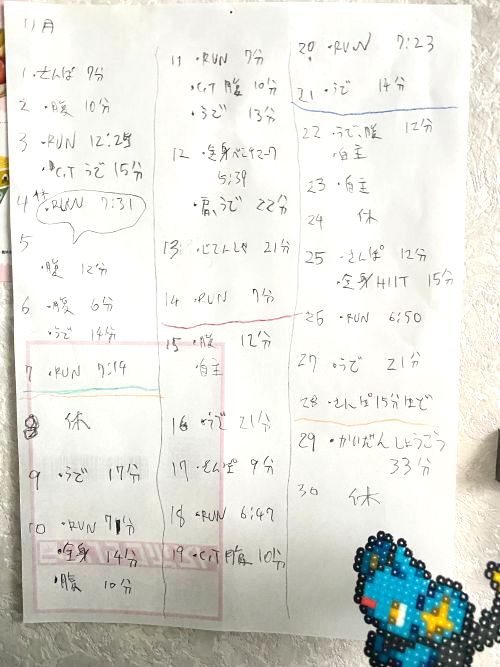 11月
1 ・さんぽ 7分
2 ・腹 10分
3 ・RUN 12:25
・C.T うで 15分
4 休
・RUN 7:31
5
・腹 12分
6 ・腹 6分
・うで 14分
7 ・RUN 7:19
8 休
9 ・うで 17分
10 ・RUN 7分
・全身 14分
・腹 10分
11 ・RUN 7分
・C,T 腹 10分
・うで 13分
12 ・全身
5:39
・肩,うで 22分
13 ・じてんしゃ 21分
14 ・RUN 7分
15 ・腹 12分
自主
16 ・うで 21分
17 ・さんぽ 9分
18 ・RUN 6:47
19 ・C,T 腹 10分
20 ・RUN 7:23
21 ・うで 14分
22 ・うで、腹 12分
・自主
23 ・自主
24 休
25 ・さんぽ 12分
・全身HIIT 15分
26 ・RUN 6:50
27 ・うで 21分
28 ・さんぽ15分ほど
29 ・かいだんしょうこう
33分
30 休